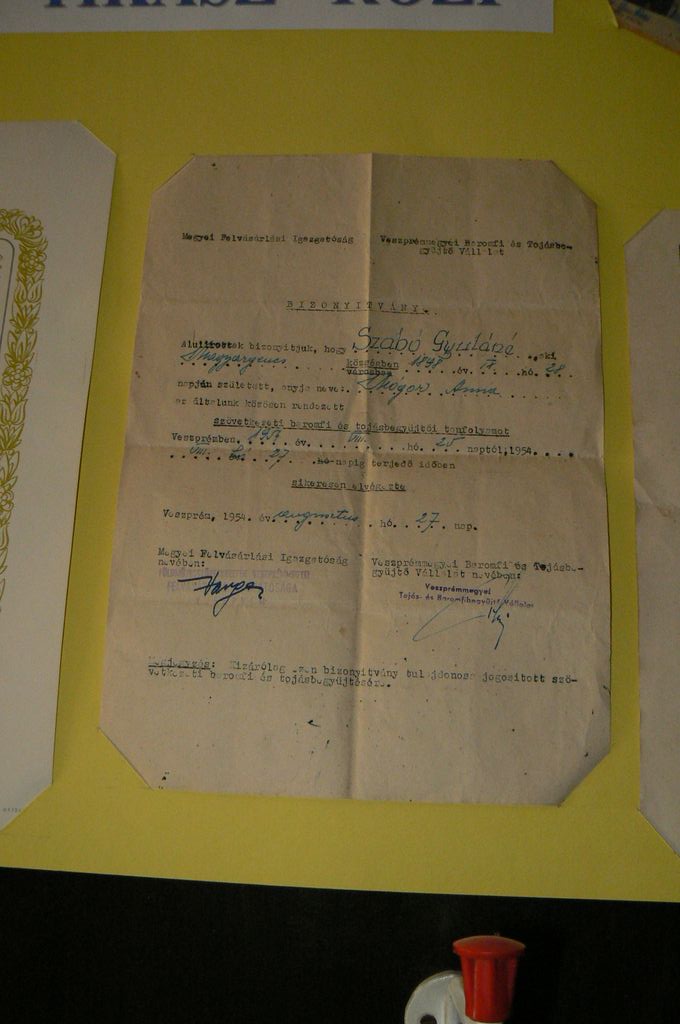 Megyei Felvásárlási Igazgatóság
Veszprémmegyei Baromfi és Tojásbe-
gyűjtő Vállalat
BIZONYITVÁNY.
Alulírottak bizonyitjuk, hogy Szabó Gyuláné, aki
községben
városban
1898 év. IX. hó. 28
napján született, anyja neve: Anna
az általunk közösen rendezett
szövetkezeti baromfi és tojásbegyűjtői tanfolyamot
Veszprémben, 1954 év. VIII. hó. 25 naptól, 1954.
VIII. 27 hó-napig terjedő időben
sikeresen elvégezte
Veszprém, 1954. év augusztus hó. 27. nap.
Megyei Felvásárlási Igazgatóság
nevében:
Veszprémmegyei Baromfi és Tojásbe-
gyűjtő Vállalat nevében:
Veszprémmegyei
Tojás- és Baromfibegyűjtő Vállalat
Megjegyzés: Kizárólag ezen bizonyitvány tulajdonosa jogosított szö-
vetkezeti baromfi és tojásbegyűjtésére.